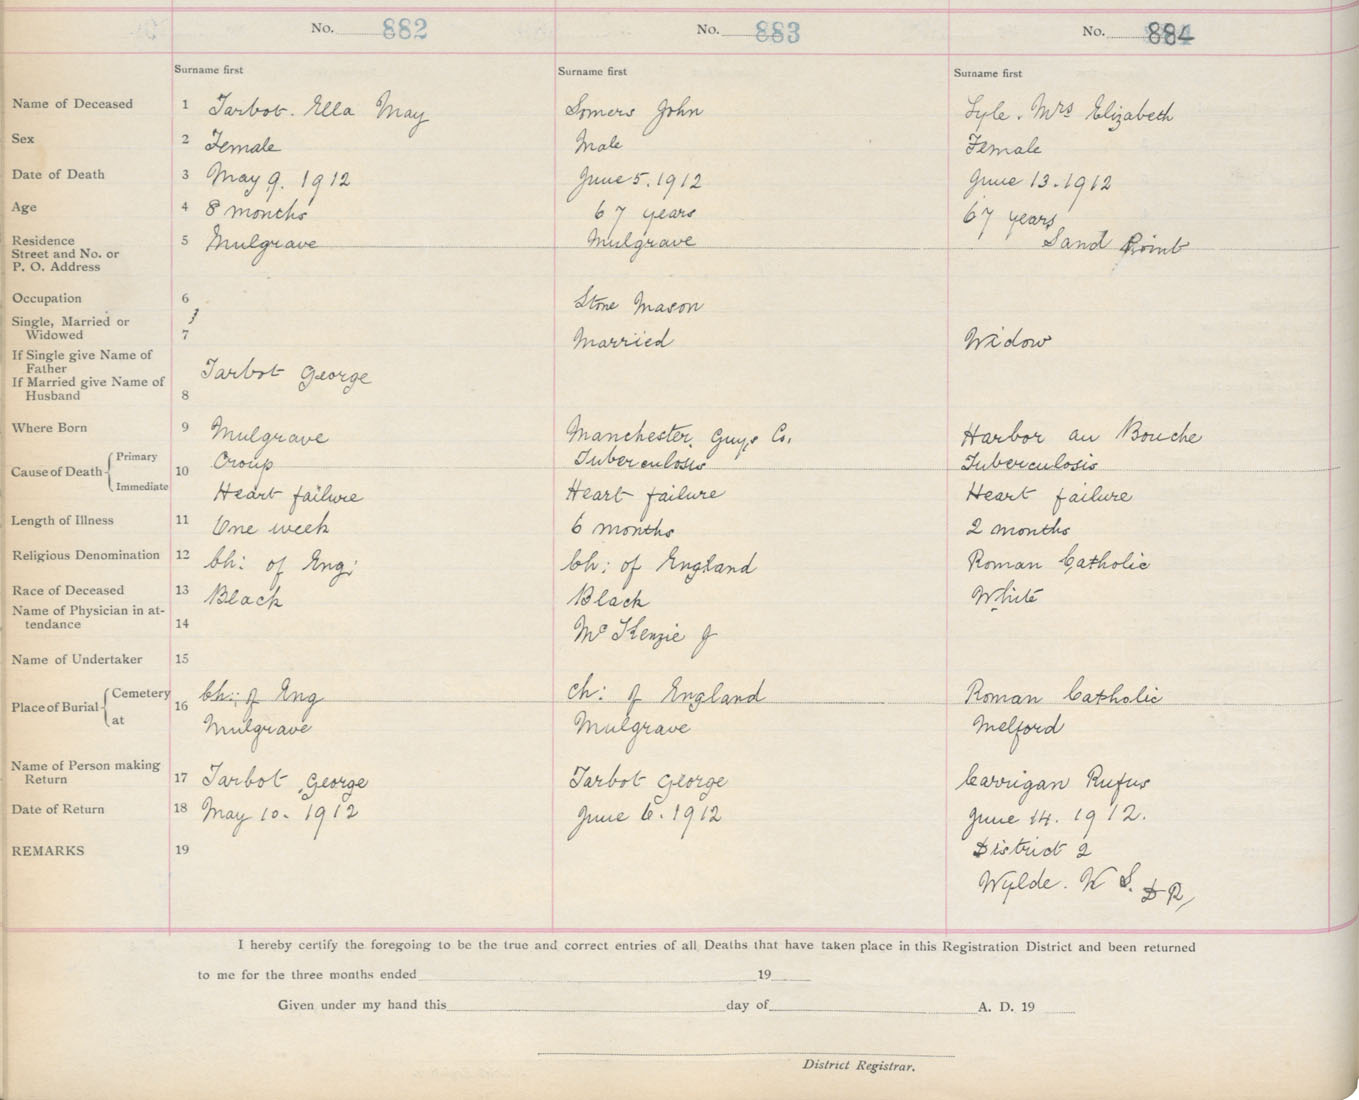 No. 882 No. 883 No. 884
Surname first Surname first Surname first
Name of Deceased 1 Tarbot. Ella May Somers John Lyle. Mrs Elizabeth
Sex 2 Female Male Female
Date of Death 3 May 9. 1912 June 5. 1912 June 13. 1912
Age 4 8 months 67 years 67 years
Residence 5 Mulgrave Mulgrave Sand Point
Street and No. or
P. O. Address
Occupation 6 Stone Mason
Single, Married or
Widowed 7 Married Widow
If Single give Name of
Father Tarbot George
If Married give Name of
Husband 8
Where Born 9 Mulgrave Manchester, Guys Co. Harbor au Bouche
Cause of Death Primary 10 Croup Tuberculosis Tuberculosis
Immediate Heart failure Heart failure Heart failure
Length of Illness 11 One week 6 months 2 months
Religious Denomination 12 Ch: of Eng: Ch: of England Roman Catholic
Race of Deceased 13 Black Black White
Name of Physician in at-
tendance 14 McKenzie J
Name of Undertaker 15
Place of Burial Cemetery 16 Ch: of Eng Ch: of England Roman Catholic
at Mulgrave Mulgrave Melford
Name of Person making
Return 17 Tarbot, George Tarbot George Carrigan Rufus
Date of Return 18 May 10. 1912 June 6. 1912 June 14. 1912.
REMARKS 19 District 2
Wylde. W S. D R,
I hereby certify the foregoing to be the true and correct entries of all Deaths that have taken place in this Registration District and been returned
to me for the three months ended 19
Given under my hand this day of A. D. 19
District Registrar.